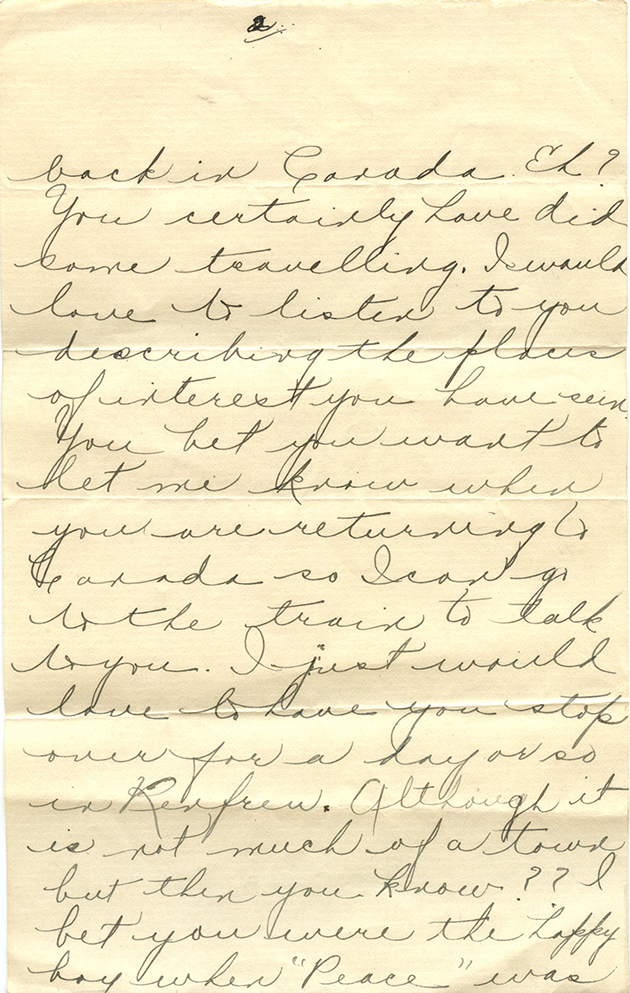 2.
back in Canada. Eh?
You certainly have did
some travelling. I would
love to listen to you
describing the places
of interest you have seen.
You bet you want to
let me know when
you are returning to
Canada so I can go
to the train to talk
to you. I just would
love to have you stop
over for a day or so
in Renfrew. Although it
is not much of a town
but then you know ?? I
bet you were the happy
boy when "Peace" was